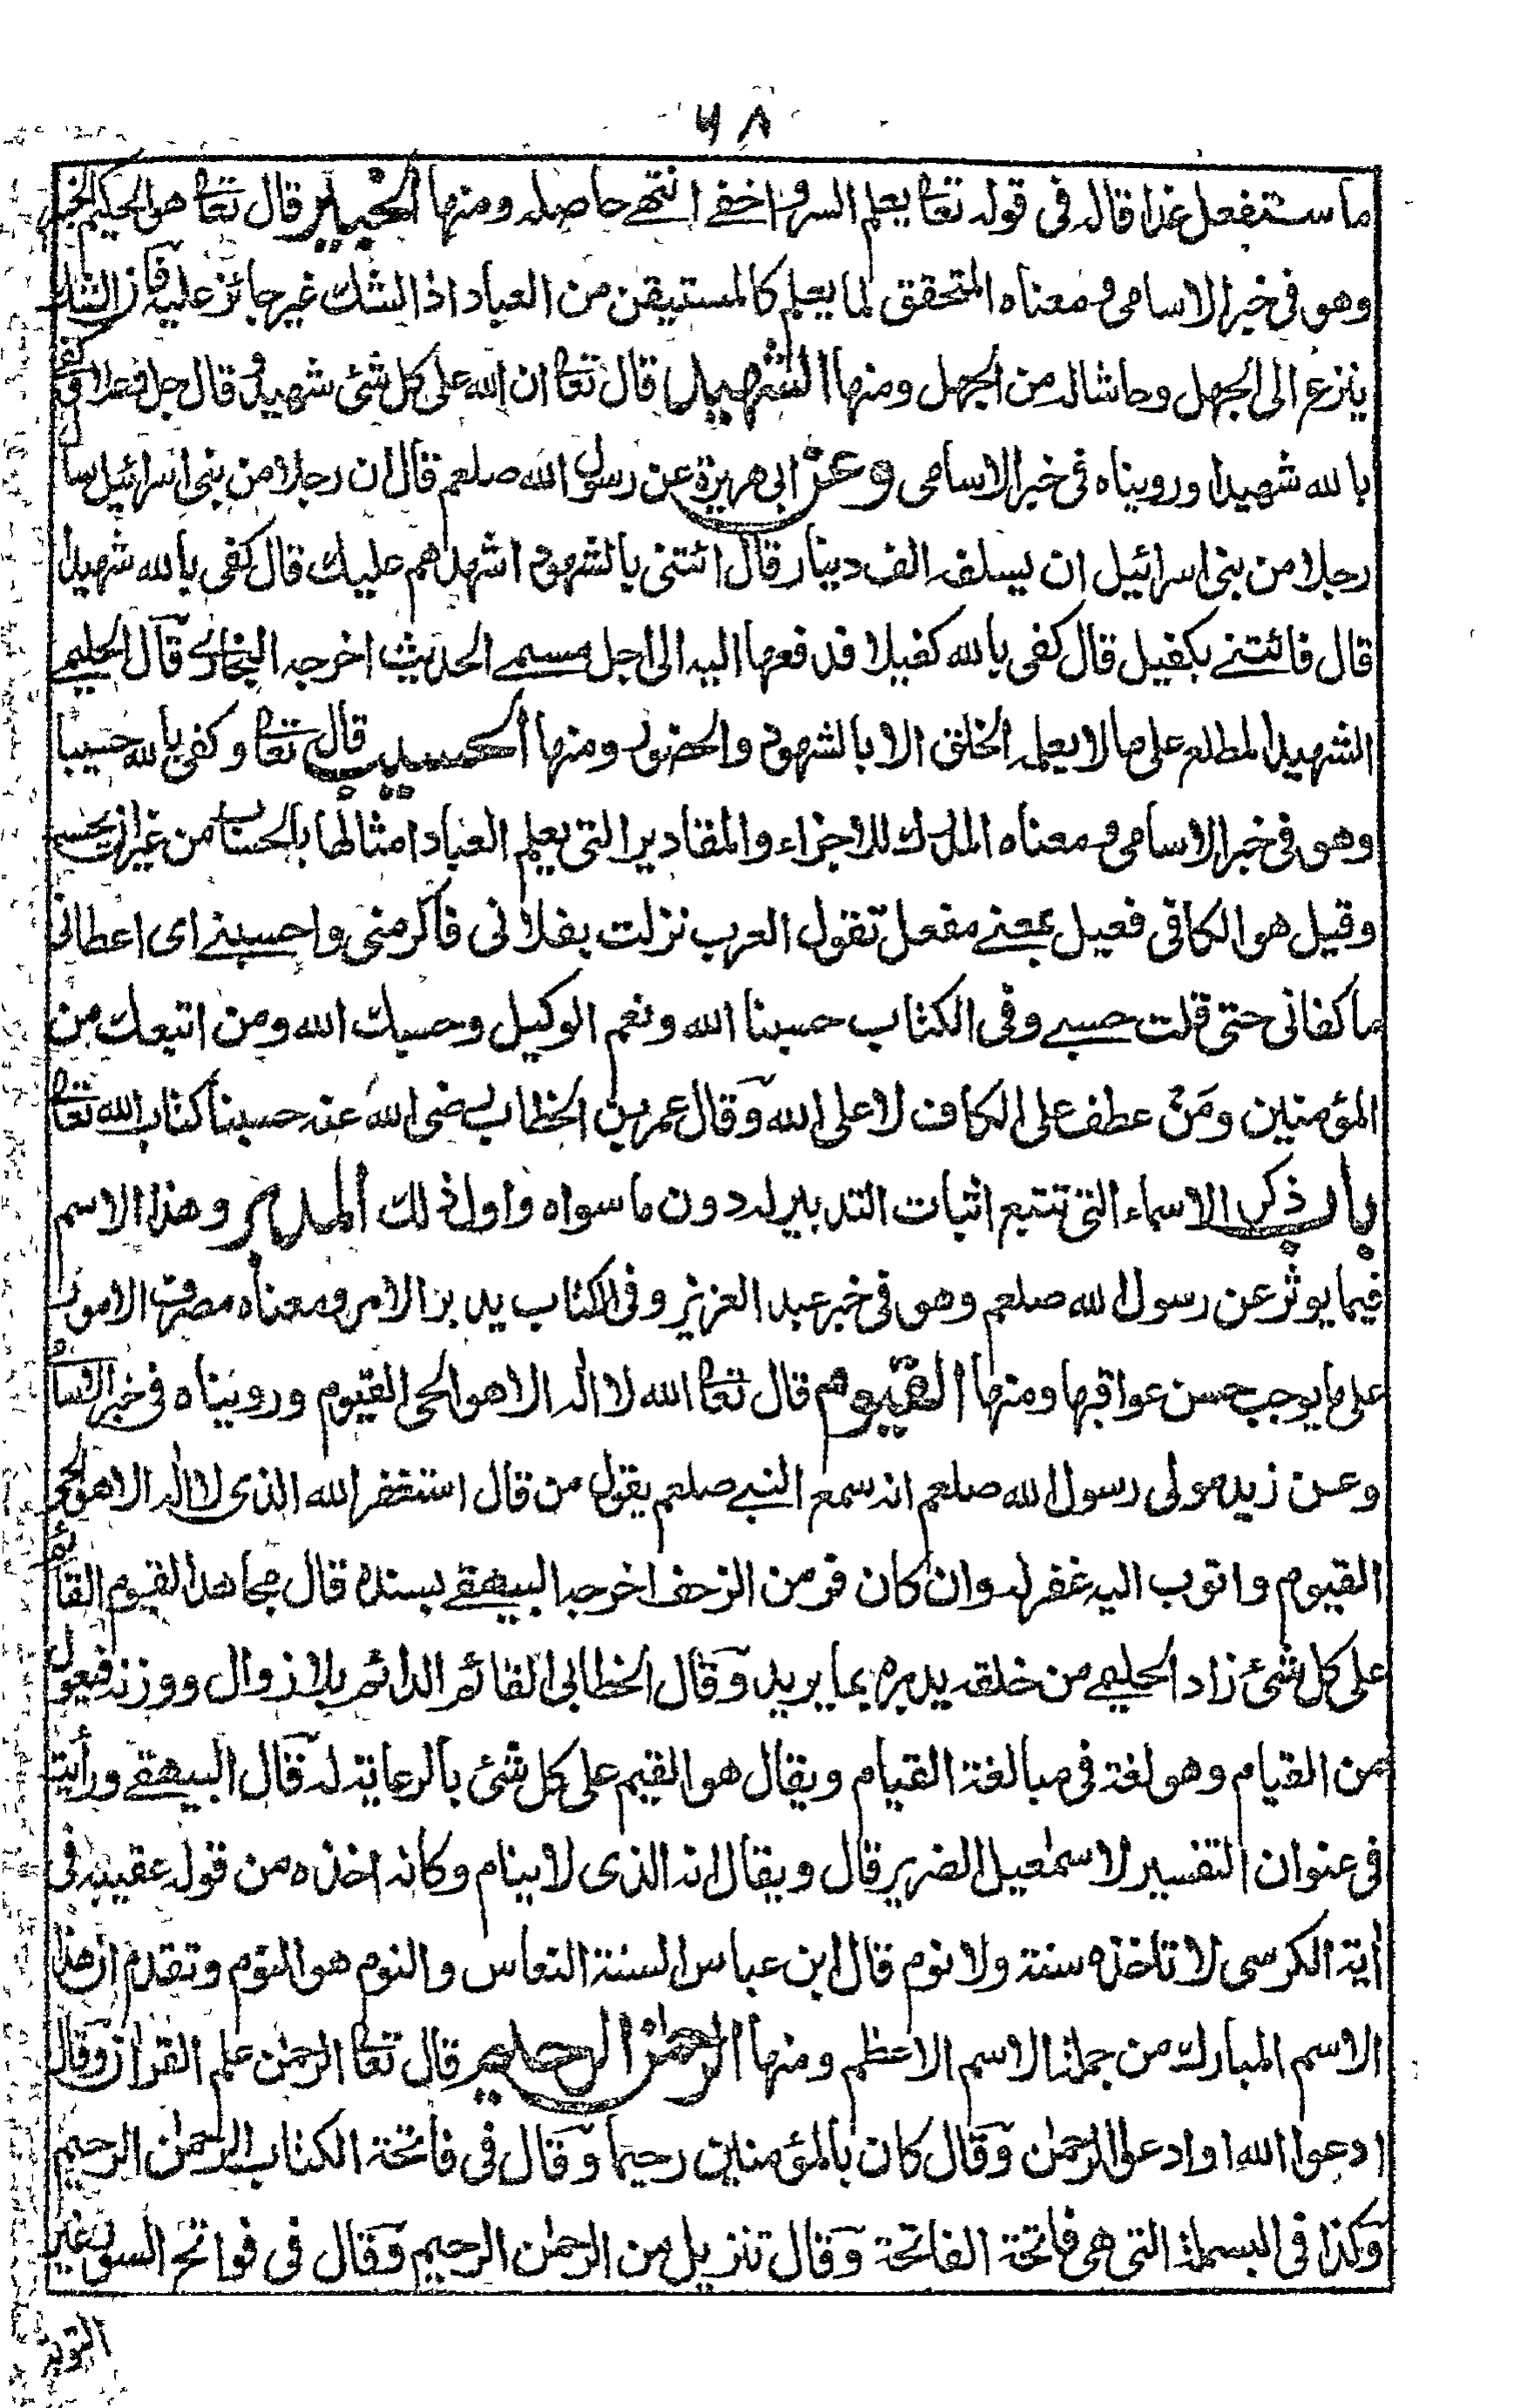 ٦٨
ما ستفعل غدا قاله فى قوله تعا يعلم السر واخفے انتهے حاصله ومنها الخبير قال تعا هو الحكيم الخبير
وهو فى خبر الاسامى ومعناه المتحقق لما يعلم كالمستيقن من العباد اذ الشك غير جائز عليه فان الشك
ينزع الى الجهل وحاشاله من الجهل ومنها الشهيد قال تعا ان الله على كل شئ شهيد وقال جل وعلا وكفى
بالله شهيدا ورويناه فى خبر الاسامى وعن ابى هريرة عن رسول الله صلعم قال ان رجلا من بنى اسرائيل سأل
رجلا من بنى اسرائيل ان يسلفه الف دينار قال ائتنى بالشهود اشهدهم عليك قال كفى بالله شهيدا
قال فائتنے بكفيل قال كفى بالله كفيلا فدفعها اليه الى اجل مسمے الحديث اخرجه البخارى وقال الحليمے
الشهيد المطلع على ما لا يعلمه الخلق الا بالشهود والحضور ومنها الحسيب قال تعا وكفى بالله حسيبا
وهو فى خبر الاسامى ومعناه المدرك للاجزاء والمقادير التى يعلم العباد امثالها بالحساب من غير ان يحسب
وقيل هو الكافى فعيل بمعنے مفعل تقول العرب نزلت بفلان فاكرمنى واحسبنے اى اعطانى
ما كفانى حتى قلت حسبے وفى الكتاب حسبنا الله ونعم الوكيل وحسبك الله ومن اتبعك من
المؤمنين ومَنْ عطف على الكاف لا على الله وقال عمر بن الخطاب رضى الله عنه حسبنا كتاب الله تعا
باب ذكر الاسماء التى تتبع اثبات التدبير له دون ما سواه واول ذلك المدبر وهذا الاسم
فيما يوثر عن رسول الله صلعم وهو فى خبر عبد العزيز وفى الكتاب يدبر الامر ومعناه مصرف الامور
على ما يوجب حسن عواقبها ومنها القيوم قال تعا الله لا اله الا هو الحى القيوم ورويناه فى خبر الاسامى
وعن زيد مولى رسول الله صلعم انه سمع النبے صلعم يقول من قال استغفر الله الذى لا اله الا هو الحى
القيوم واتوب اليه غفر له وان كان فر من الزحف اخرجه البيهقے بسنده قال مجاهد القيوم القائم
على كل شئ زاد الحليمے من خلقه يدبره بما يريد وقال الخطابى القائم الدائم بلا زوال ووزنه فيعول
من القيام وهو لغة فى مبالغة القيام ويقال هو القيم على كل شئ بالرعاية له قال البيهقے ورأيت
فى عنوان التفسير لاسمٰعيل الضرير قال ويقال انه الذى لا ينام وكانه اخذه من قوله عقيبه فى
اية الكرسى لا تاخذه سنة ولا نوم قال ابن عباس السنة النعاس والنوم هو النوم وتقدم ان هذا
الاسم المبارك من جملة الاسم الاعظم ومنها الرحمٰن الرحيم قال تعا الرحمٰن علم القران وقال
ادعوا الله او ادعوا الرحمٰن وقال كان بالمؤمنين رحيما وقال فى فاتحة الكتاب الرحمٰن الرحيم
وكذا فى البسملة التى هى فاتحة الفاتحة وقال تنزيل من الرحمٰن الرحيم وقال فى فواتح السور غير
التوبة